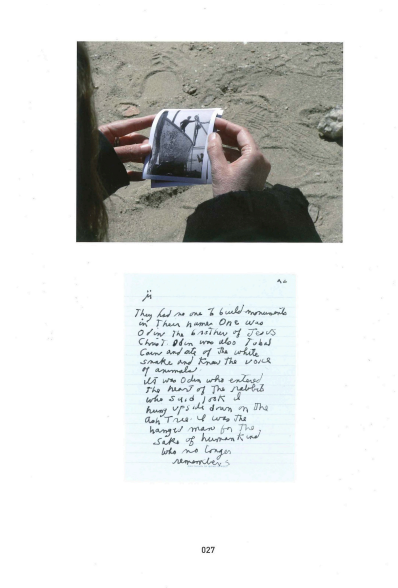 ji
They had no one to build monuments
in Their names One was
Odin The brother of Jesus
Christ. Odin was also Tubal
Cain and ate of the white
snake and knew the voice
of animals
It was Odin who entered
The heart of The rabbis
who said look I
hung upside down on The
Ash Tree. I was The
hanged man for The
sake of humankind
who no longer
remembers
027